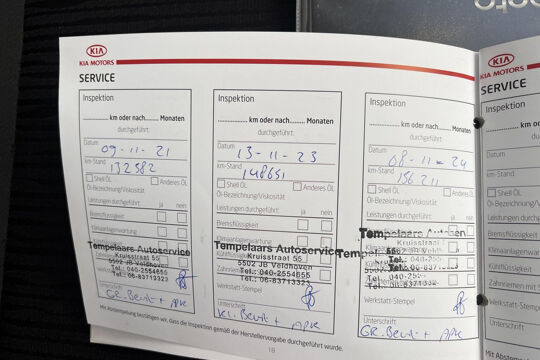 KIA
KIA MOTORS
SERVICE
Inspektion
........... km oder nach........ Monaten
durchgeführt:
Datum 09-11-21
km-Stand 132582
Shell ÖL Anderes Öl
Öl-Bezeichnung/Viskosität
Leistungen durchgeführt: ja nein
Bremsflüssigkeit
Klimaanlagenwartung
Tempelaars Autoservice
Kruisstraat 55
5502 JB Veldhoven
Tel.: 040-2554655
Tel.: 06-83713323
Werkstatt-Stempel
Unterschrift
GR. Beurt + APK
Inspektion
........... km oder nach........ Monaten
durchgeführt:
Datum 13-11-23
km-Stand 148651
Shell ÖL Anderes Öl
Öl-Bezeichnung/Viskosität
Leistungen durchgeführt: ja nein
Bremsflüssigkeit
Klimaanlagenwartung
Tempelaars Autoservice
Kruisstraat 55
5502 JB Veldhoven
Tel.: 040-2554655
Tel.: 06-83713323
Werkstatt-Stempel
Unterschrift
Kl. Beurt + APK
Inspektion
........... km oder nach........ Monaten
durchgeführt:
Datum 08-11-24
km-Stand 156211
Shell ÖL Anderes Öl
Öl-Bezeichnung/Viskosität
Leistungen durchgeführt: ja nein
Bremsflüssigkeit
Kruisstraat
Werkstatt-Stempel
Unterschrift
GR. Beurt + APK
Mit Abstempelung bestätigen wir, dass die Inspektion gemäß der Herstellervorgabe durchgeführt wurde.
18
KIA
KIA MOTORS
SERVICE
Inspektion
Datum
km-Stand
Shell ÖL
Öl-Bezeichnung
Bremsflüssigkeit
Klimaanlagenwartung
Kühlflüssigkeit
Werkstatt-Stempel
Unterschrift